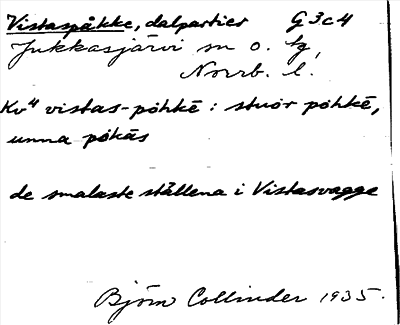 Vistaspåkke, dalpartier G3c4
Jukkasjärvi sn o. tg,
Norrb. l.
Kv⁴ vistas-pòhkē : stuòr pòhkē,
unna pòkās
de smalaste ställena i Vistasvagge
Björn Collinder 1935.